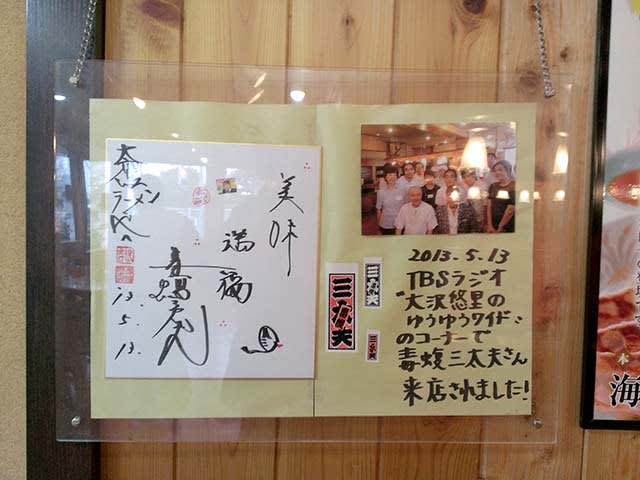 美味
満福
毒蝮三太夫
13.5.13.
三太夫
三太夫
三太夫
2013.5.13
TBSラジオ
"大沢悠里の
ゆうゆうワイド"
のコーナーで
毒蝮三太夫さん
来店されました!
海